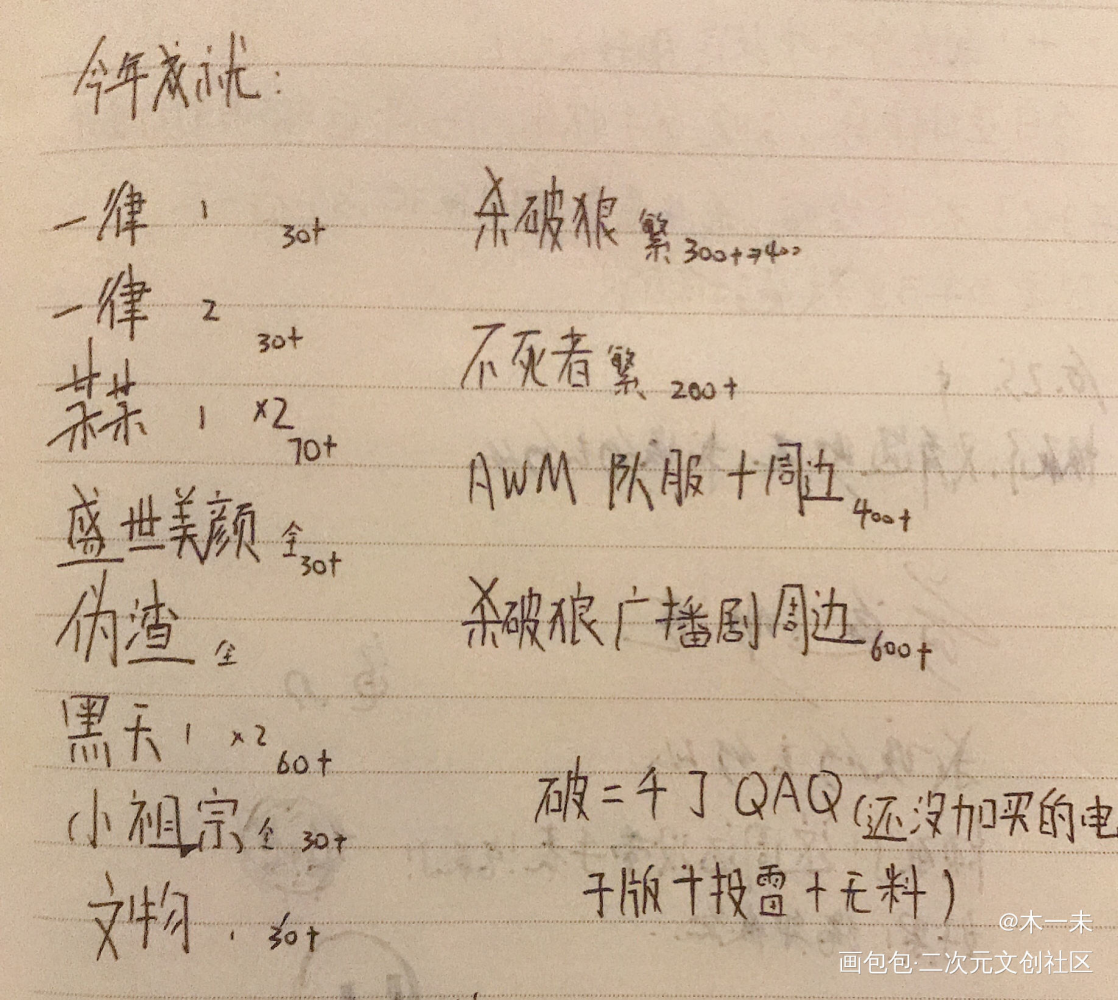 今年成就：
一律 1 30+
一律 2 30+
某某 1 ×2 70+
盛世美颜 全 30+
伪渣 全
黑天 1 ×2 60+
小祖宗 全 30+
文物 1 30+
杀破狼 繁 300+→400
不死者 繁 200+
AWM 队服+周边 400+
杀破狼广播剧周边 600+
破二千了QAQ(还没加买的电
子版+投雷+无料)
@木一未
画包包·二次元文创社区